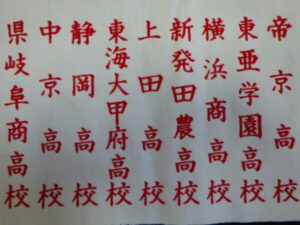 帝京高校
東亜学園高校
横浜商高校
新発田農高校
上田高校
東海大甲府高校
静岡高校
中京高校
県岐阜商高校